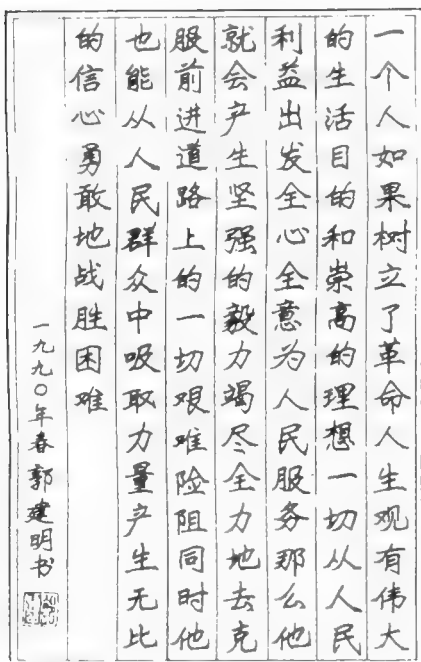 一个人如果树立了革命人生观有伟大
的生活目的和崇高的理想一切从人民
利益出发全心全意为人民服务那么他
就会产生坚强的毅力竭尽全力地去克
服前进道路上的一切艰难险阻同时他
也能从人民群众中吸取力量产生无比
的信心勇敢地战胜困难
一九九〇年春郭建明书